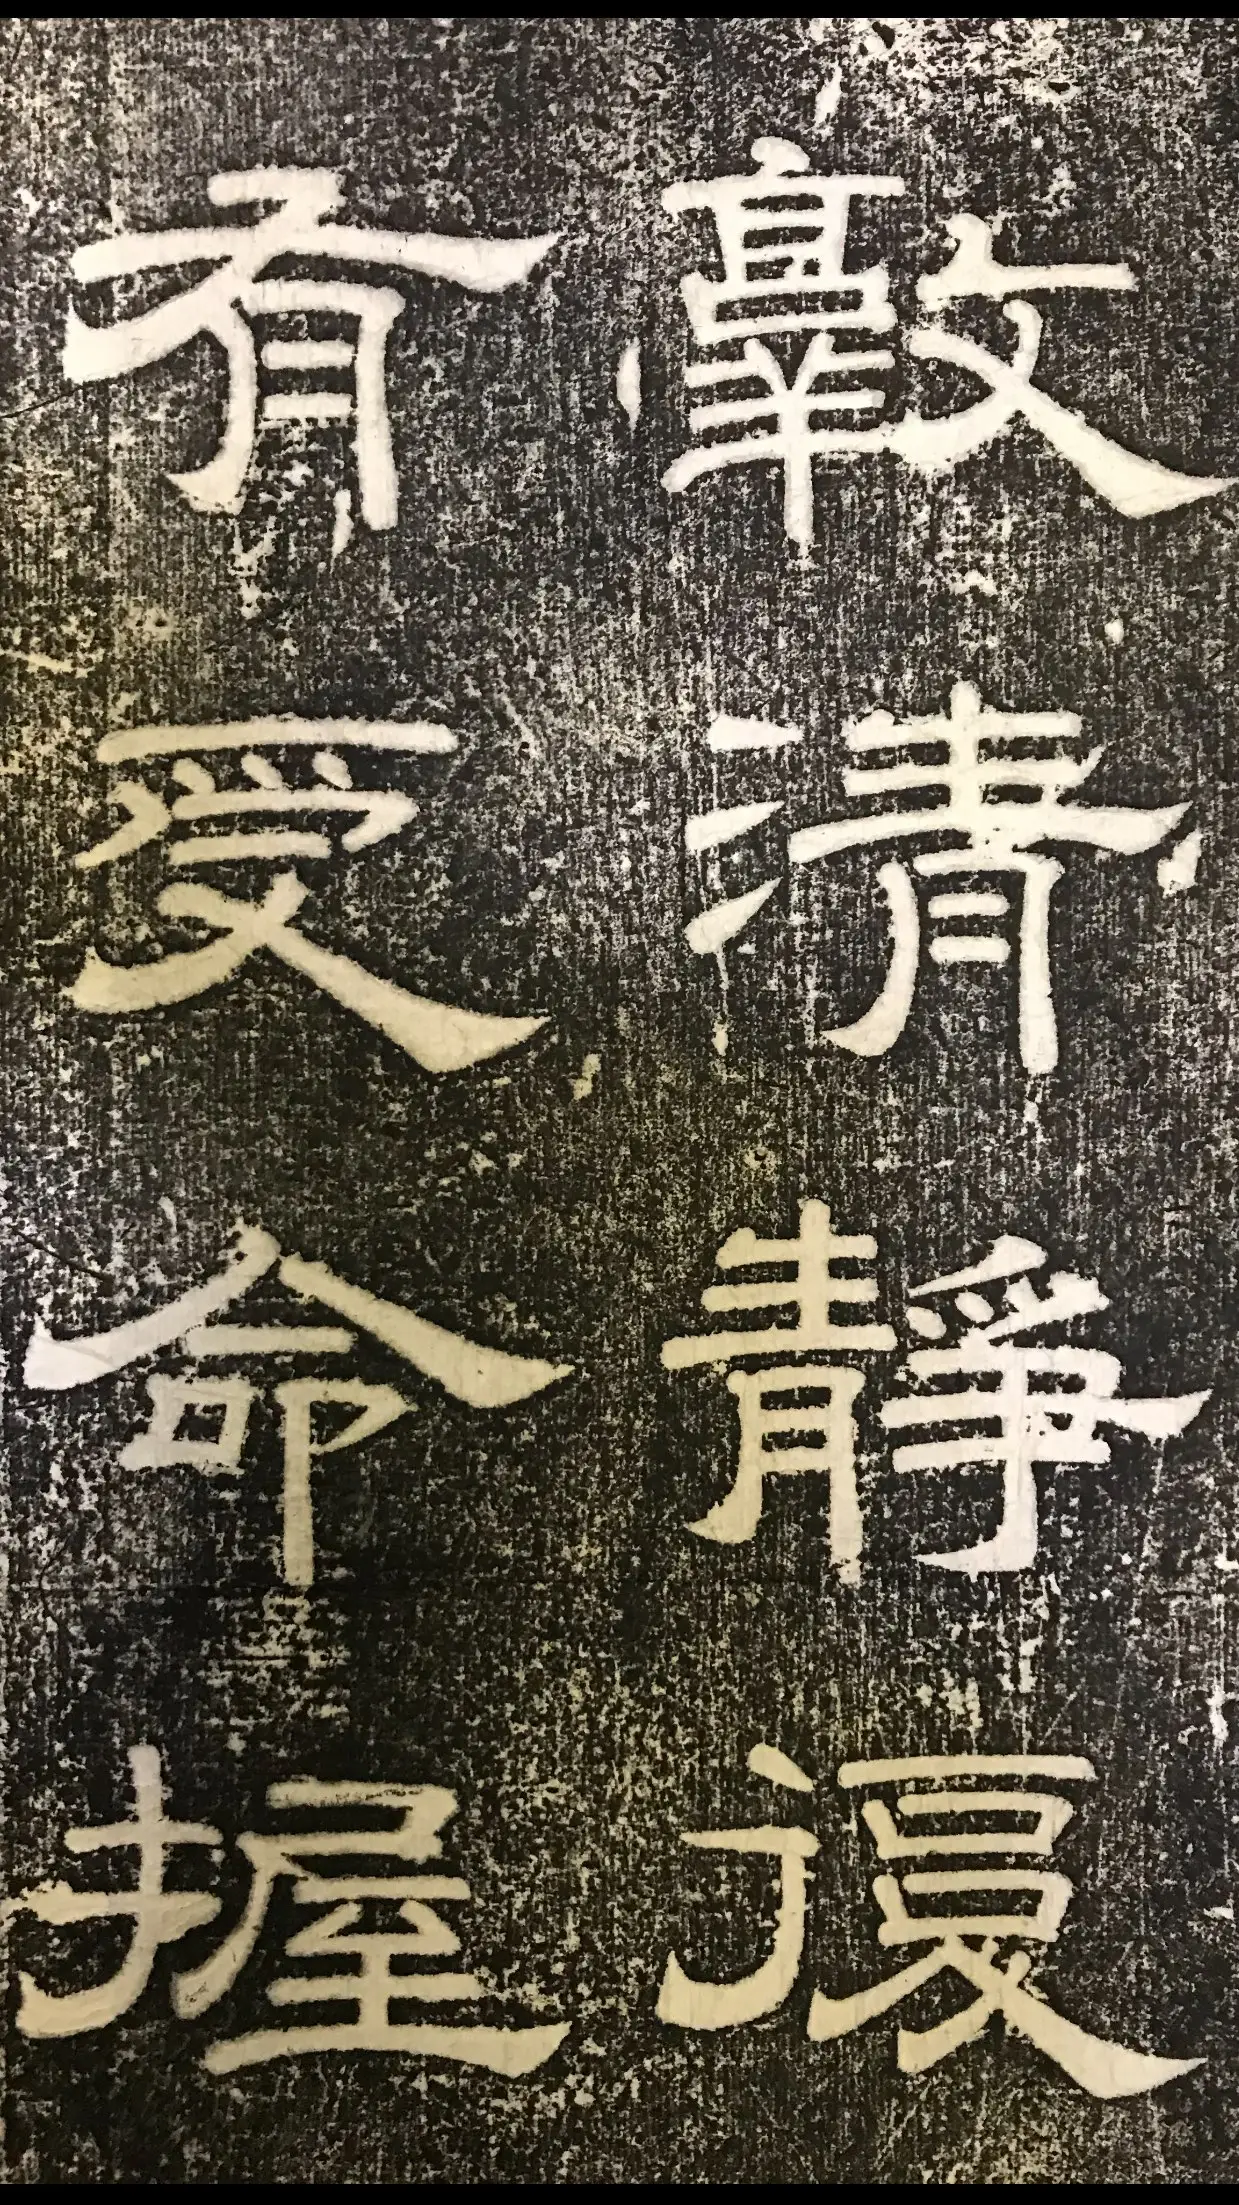 敦清靜復
有受命握